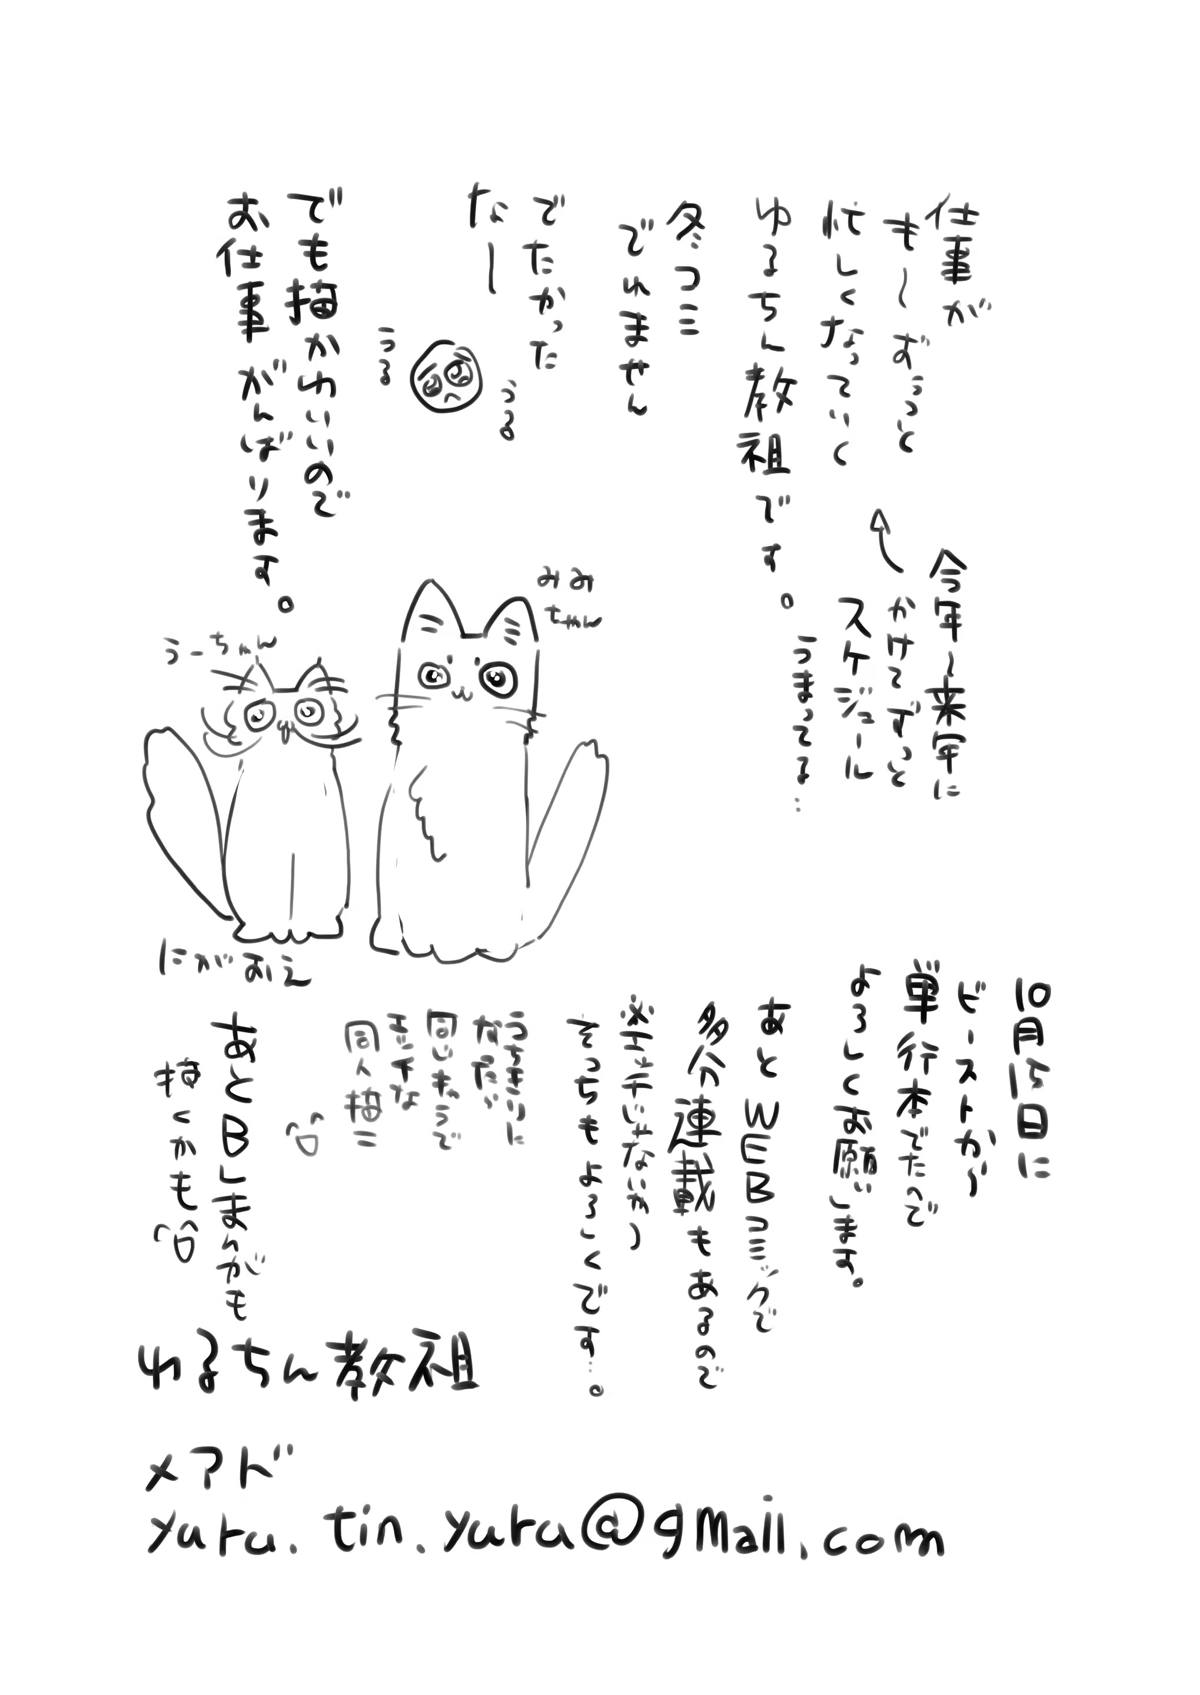 仕事が
も〜ずぅっと
忙しくなっていく
ゆるちん教祖です。
今年〜来年に
かけてずっと
スケジュール
うまってる…
冬コミ
でれません
でたかった
なー
うる
うる
でも描かわいいので
お仕事がんばります。
みみ
ちゃん
うーちゃん
にがおえ
10月15日に
ビーストから
単行本でたへで
よろしくお願いします。
あとWEBコミックで
多分連載もあるので
そっちもよろしくです…。
うちきりに
なったら
同じキャラで
エッチな
同人描こ
あとBLまんがも
描くかも
ゆるちん教祖
メアド
yuru.tin.yuru@gmail.com